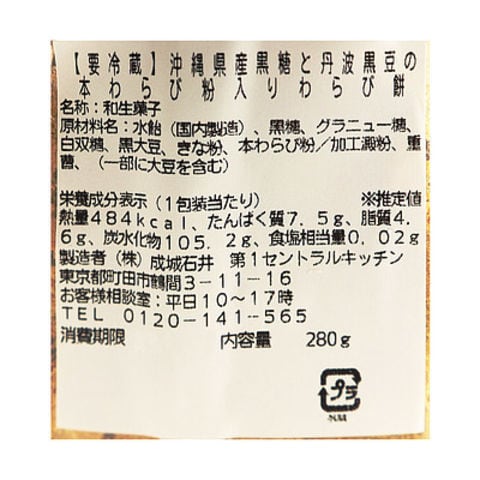 【要冷蔵】沖縄県産黒糖と丹波黒豆の
本わらび粉入りわらび餅
名称：和生菓子
原材料名：水飴（国内製造）、黒糖、グラニュー糖、
白双糖、黒大豆、きな粉、本わらび粉／加工澱粉、重
曹、（一部に大豆を含む）
栄養成分表示（1包装当たり） ※推定値
熱量484kcal、たんぱく質7.5g、脂質4.
6g、炭水化物105.2g、食塩相当量0.02g
製造者（株）成城石井 第1セントラルキッチン
東京都町田市鶴間3－11－16
お客様相談室：平日10～17時
TEL 0120－141－565
消費期限 内容量 280g
プラ